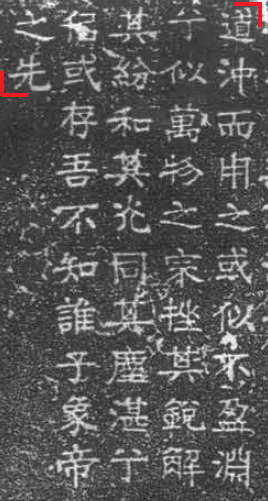 道沖而用之或似不盈淵
乎似萬物之宗挫其銳解
其紛和其光同其塵湛乎
佀或存吾不知誰子象帝
之先